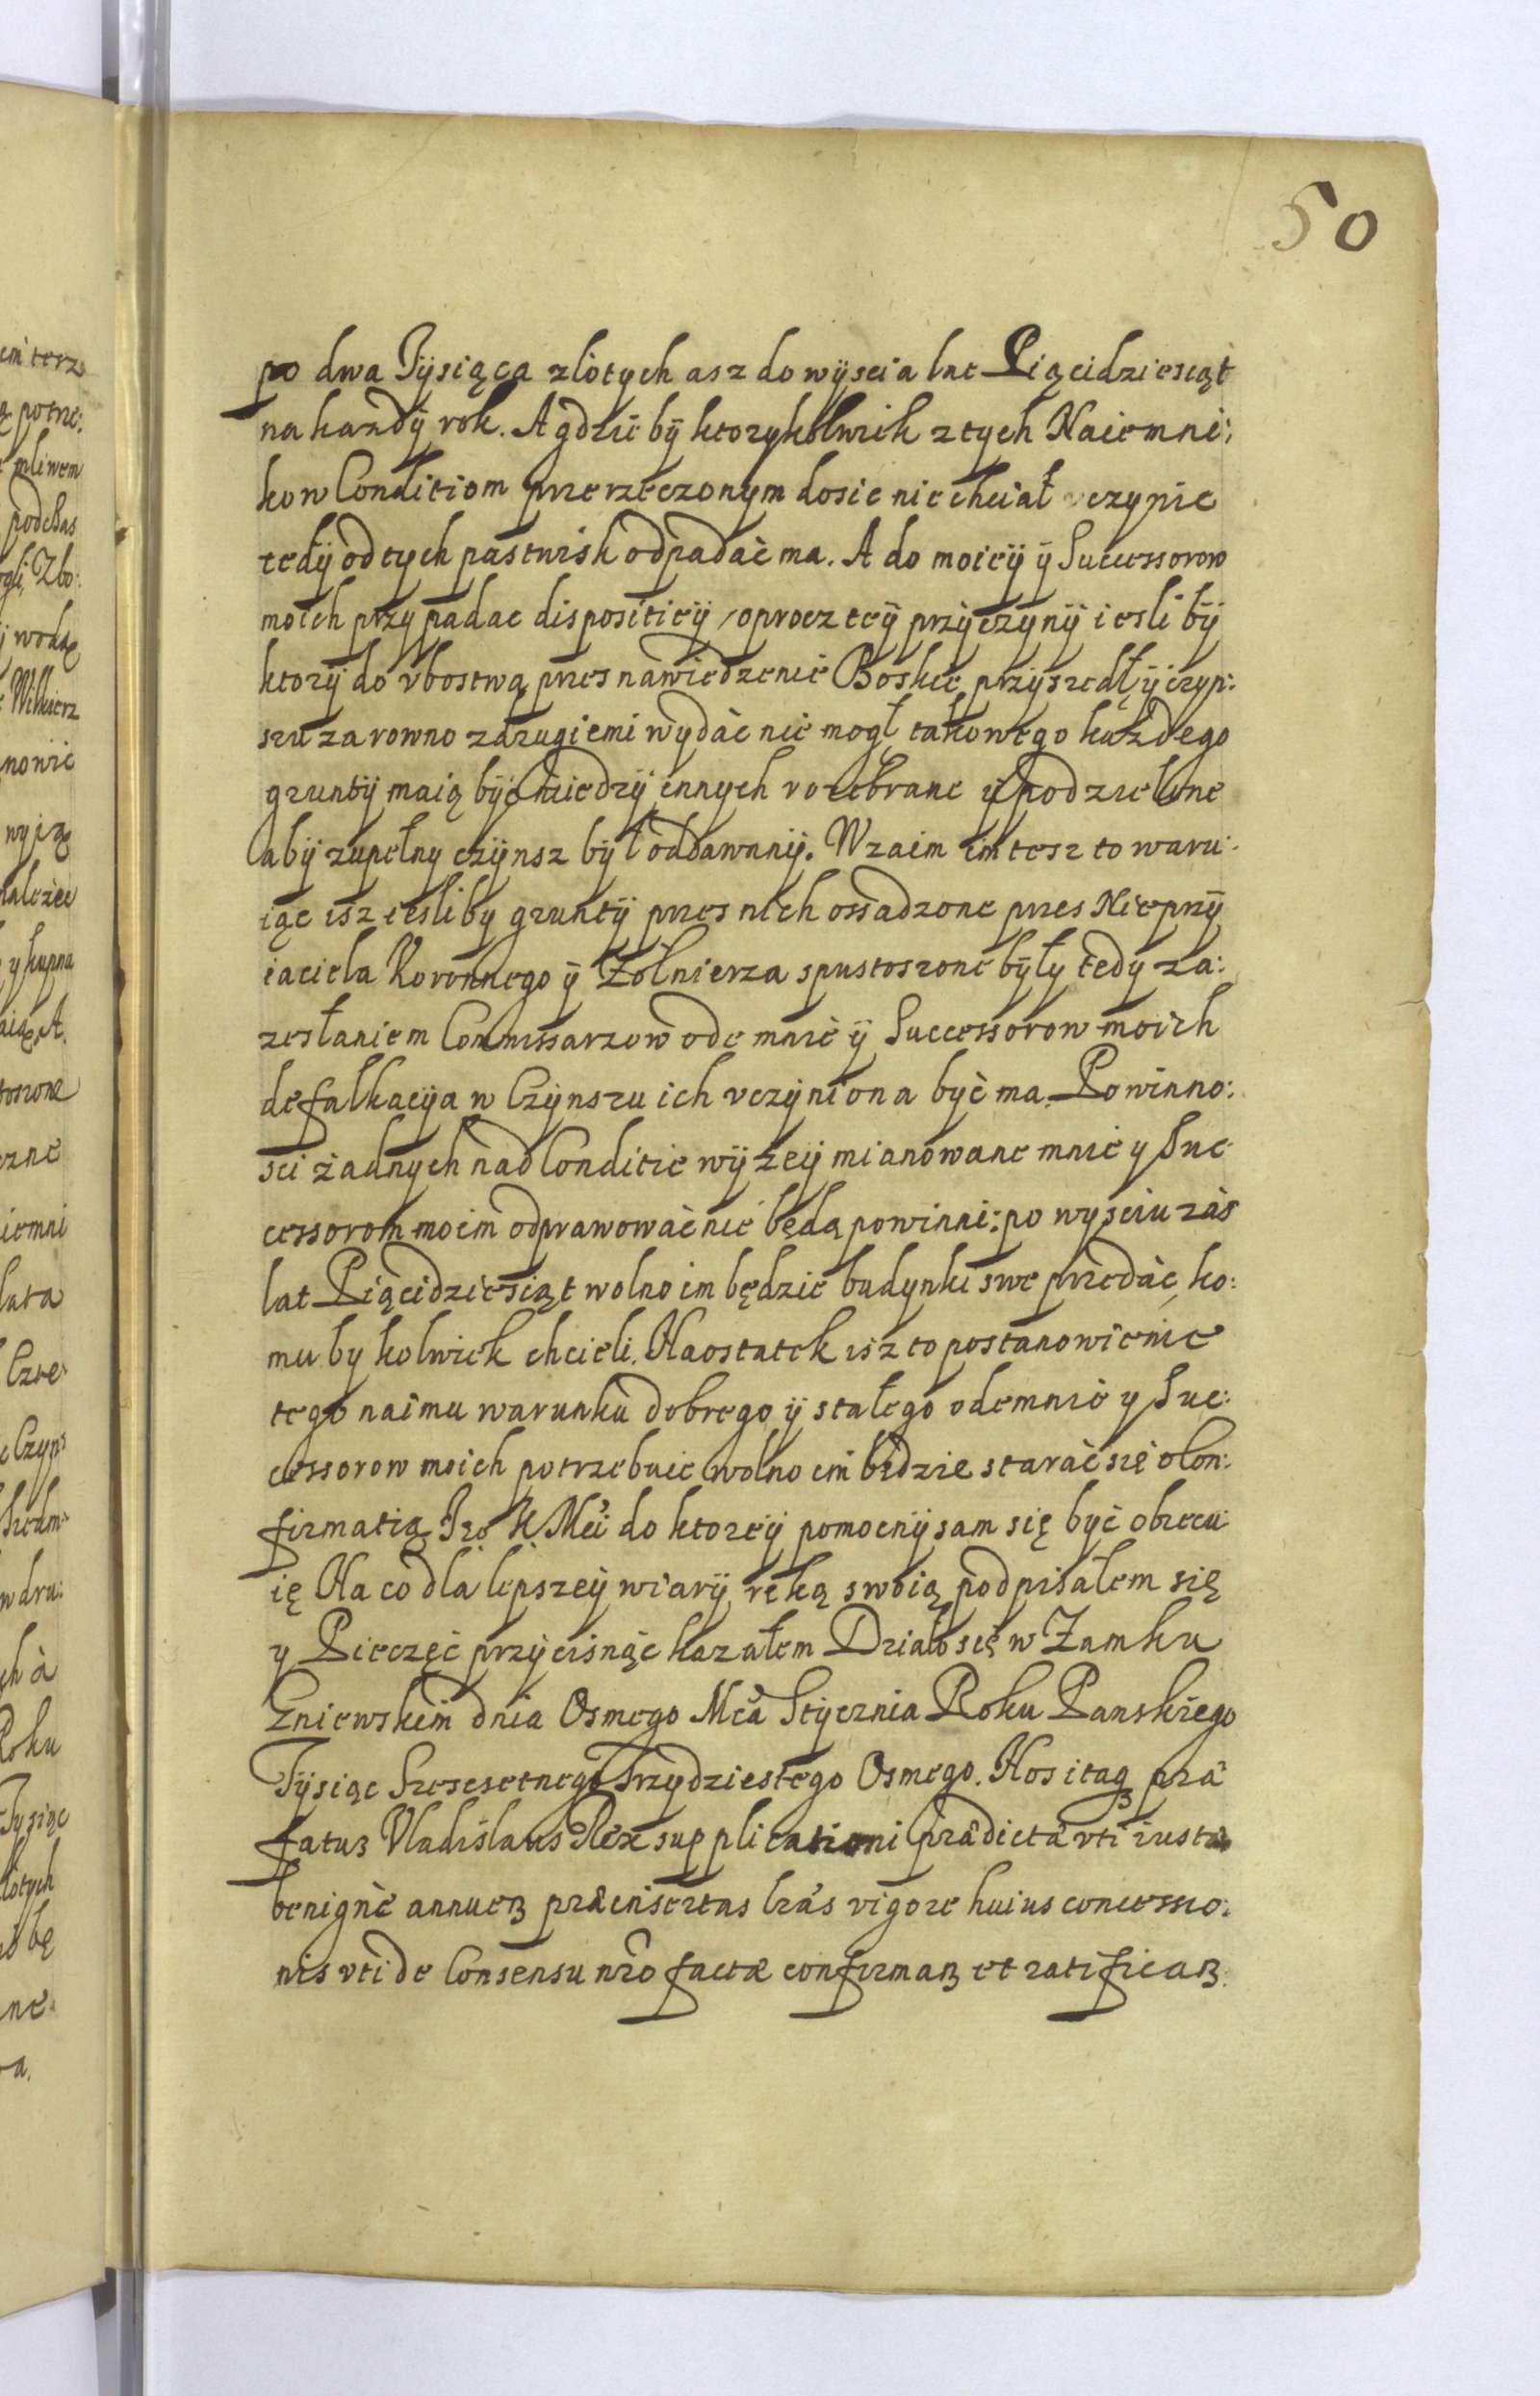 50
po dwa Tysiąca zlotych asz do wÿscia lat Piącidziesiąt
na kazdÿ rok. A gdzie bÿ ktorykolwiek z tych Naiemni:
kow Conditiom przerzeczonym dosic nie chciał vczynic
tedÿ od tych pastwisk odpadać ma. A do moieÿ ÿ Successorow
moich przypadac dispositieÿ, oprocz teÿ przÿczÿnÿ iesli bÿ
ktorÿ do vbostwą przes nawiedzenie Boskie przÿszedł, ÿ czyn:
szu zarowno z drugiemi wydać nie mogł takowego każdego
gruntÿ maią bÿc miedzÿ innych rozebrane ÿ podzielone
abÿ zupełny czÿnsz bÿł oddawanÿ. Wzaim im tesz to waru:
iąc isz iesliby gruntÿ przes nich ossadzone przes Nieprzÿ
iaciela Koronnego ÿ Żołnierza spustoszone bÿły tedy za:
zesłaniem Commissarzow ode mnie ÿ Successorow moich
defalkacÿa w Czÿnszu ich vczÿniona być ma. Powinno:
sci żadnych nad Conditie wÿżeÿ mianowane mnie y Suc
cessorom moim odprawować nie będą powinni: po wysciu zaś
lat Piącidziesiąt wolno im będzie budynki swe przedać, ko:
mu by kolwiek chcieli. Naostatek isz to postanowienie
tego naimu warunku dobrego ÿ stałego odemnie y Suc:
cessorow moich potrzebuie wolno im będzie starać się o Con:
firmatią Jeo K Mći do ktoreÿ pomocnÿ sam się być obiecu
ię Na co dla lepszeÿ wiarÿ ręką swoią podpisałem się
y Pieczęć przÿcisnąc kazałem Działo się w Zamku
Gniewskim dnia Osmego Mća Stÿcznia Roku Panskiego
Tÿsiąc Szescsetnego Trzydziestego Osmego. Nos itaqꝫ præ
fatus Vladislaus Rex supplicationi prædictæ vti iustæ
benignè annueꝫ præinsertas lr̃as vigore huius concessio:
nis vti de Consensu nr̃o factæ confirmaꝫ et ratificaꝫ.